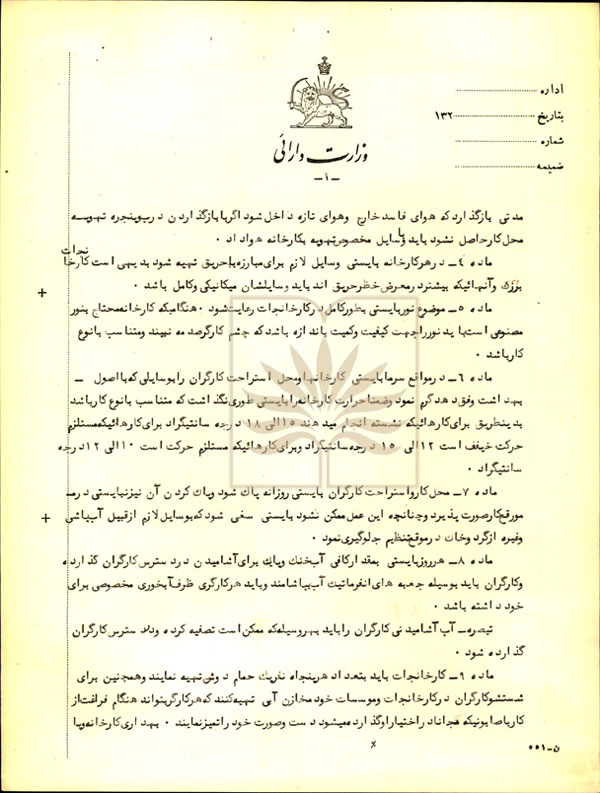 اداره
بتاریخ ۱۳۲
شماره
ضمیمه
وزارت دارائی
ـ۱ـ
مدتی بازگذارد که هوای فاسد خارج وهوای تازه داخل شود اگر با بازگذاردن درب وپنجره تهویسه
محل کار حاصل نشود باید وسایل مخصوص تهویه بکارخانه هوا داد ۰
ماده ٤ـ در هر کارخانه بایستی وسایل لازم برای مبارزه با حریق تهیه شود بدیهی است کارخا نجات
بزرگ وآنهائیکه بیشتر در معرض خطر حریق اند باید وسایلشان میکانیکی وکامل باشد ۰
ماده ۵ـ موضوع نور بایستی بطور کامل در کارخانجات رعایت شود ۰ هنگامیکه کارخانه محتاج بنور
مصنوعی است باید نور از جهت کیفیت وکمیت باندازه باشد که چشم کارگر صدمه نبیند ومتناسب با نوع
کار باشد ۰
ماده ۶ـ در مواقع سرما بایستی کارخانها ومحل استراحت کارگران را بوسایلی که با اصول ـ
بهداشت وفق دهد گرم نمود وضمنا حرارت کارخانه را بایستی طوری نگذاشت که متناسب با نوع کار باشد
بدینطریق برای کارهائیکه نشسته انجام میدهند ۱۵ الی ۱۸ درجه سانتیگراد برای کارهائیکه مستلزم
حرکت خیفف است ۱۲ الی ۱۵ درجه سانتیگراد وبرای کارهائیکه مستلزم حرکت است ۱۰ الی ۱۲ درجه
سانتیگراد ۰
ماده ۷ـ محل کار واستراحت کارگران بایستی روزانه پاك شود وپاك کردن آن نیز نبایستی در مـ
موقع کار صورت پذیرد وچنانچه این عمل ممکن نشود بایستی سعی شود که بوسایل لازم از قبیل آب پاشی
وغیره از گرد وخاك در موقع تنظیم جلوگیری نمود ۰
ماده ۸ـ هر روز بایستی بمقدار کافی آب خنك وپاك برای آشامیدن در دسترس کارگران گذارده
وکارگران باید بوسیله جعبه های اتفرماتیك آب بیاشامند وباید هر کارگری ظرف آبخوری مخصوصی برای
خود داشته باشد ۰
تبصره ـ آب آشامیدنی کارگران را باید بهر وسیله که ممکن است تصفیه کرده ودر دسترس کارگران
گذارده شود ۰
ماده ۹ـ کارخانجات باید بتعداد هر پنجاه نفر یك حمام دوش تهیه نمایند وهمچنین برای
شستشو کارگران در کارخانجات وموسسات خود مخازن آبی تهیه کنند که هر کارگر بتواند هنگام فراغت از
کار با صابونیکه مجانا در اختیار او گذارده میشود دست وصورت خود را تمیز نمایند ۰ بهداری کارخانه ویا
ن ـ ۵۵۱